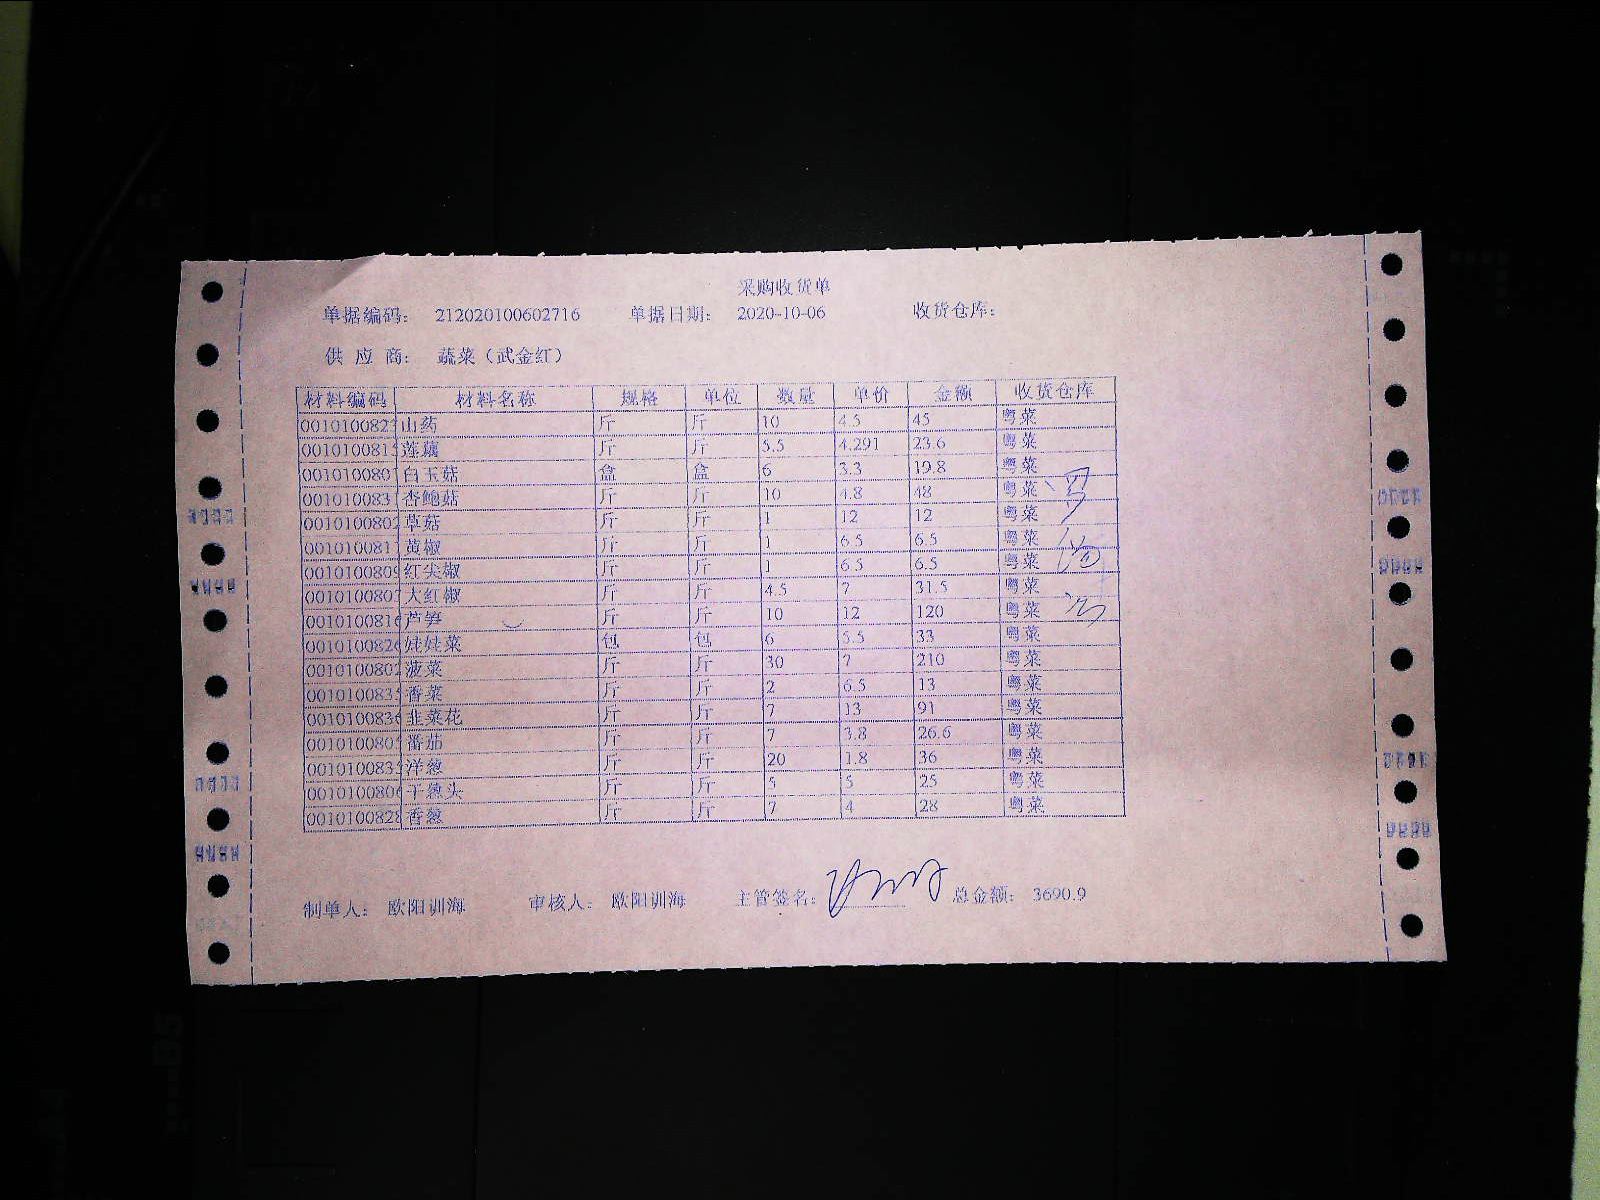 采购收货单
单据编码: 212020100602716 单据日期: 2020-10-06 收货仓库:
供 应 商: 蔬菜（武金红）
材料编码 材料名称 规格 单位 数量 单价 金额 收货仓库
0010100823 山药 斤 斤 10 4.5 45 粤菜
0010100815 莲藕 斤 斤 5.5 4.291 23.6 粤菜
0010100807 白玉菇 盒 盒 6 3.3 19.8 粤菜
0010100831 杏鲍菇 斤 斤 10 4.8 48 粤菜
0010100802 草菇 斤 斤 1 12 12 粤菜
0010100811 黄椒 斤 斤 1 6.5 6.5 粤菜
0010100809 红尖椒 斤 斤 1 6.5 6.5 粤菜
0010100807 大红椒 斤 斤 4.5 7 31.5 粤菜
0010100816 芦笋 斤 斤 10 12 120 粤菜
0010100826 娃娃菜 包 包 6 5.5 33 粤菜
0010100802 菠菜 斤 斤 30 7 210 粤菜
0010100835 香菜 斤 斤 2 6.5 13 粤菜
0010100836 韭菜花 斤 斤 7 13 91 粤菜
0010100805 番茄 斤 斤 7 3.8 26.6 粤菜
0010100833 洋葱 斤 斤 20 1.8 36 粤菜
0010100806 干葱头 斤 斤 5 5 25 粤菜
0010100828 香葱 斤 斤 7 4 28 粤菜
制单人: 欧阳训海 审核人: 欧阳训海 主管签名: 总金额: 3690.9